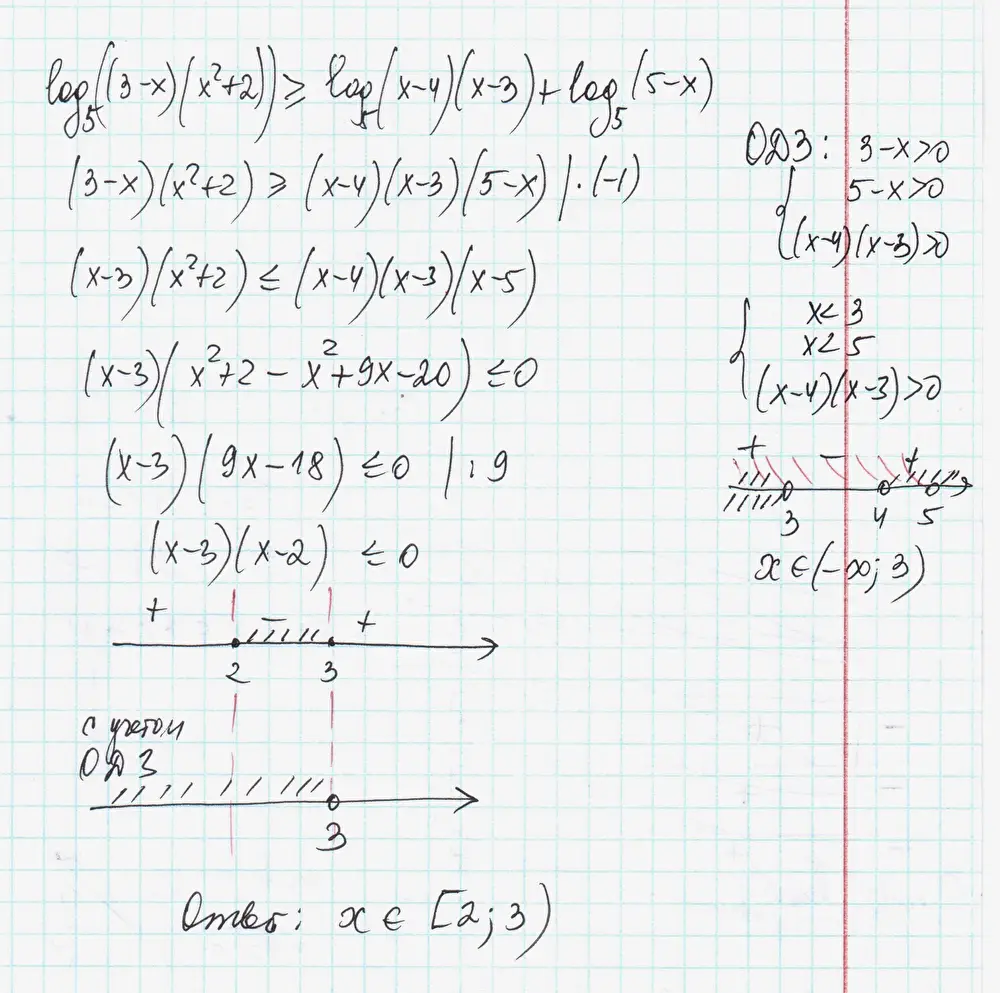 log₅((3-x)(x²+2)) ≥ log₅(x-4)(x-3) + log₅(5-x)
(3-x)(x²+2) ≥ (x-4)(x-3)(5-x) |·(-1)
(x-3)(x²+2) ≤ (x-4)(x-3)(x-5)
(x-3)(x²+2-x²+9x-20) ≤0
(x-3)(9x-18) ≤0 |:9
(x-3)(x-2) ≤0
+ - +
2 3
с учетом
ОДЗ
3
Ответ: x ∈ [2; 3)
ОДЗ: 3-x>0
5-x>0
(x-4)(x-3)>0
x<3
x<5
(x-4)(x-3)>0
+ - +
3 4 5
x ∈ (-∞; 3)